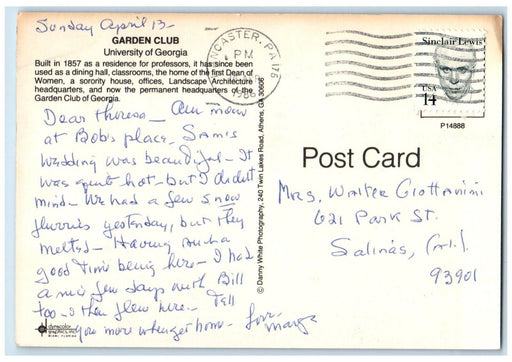 Sunday April 13-
GARDEN CLUB
University of Georgia
Built in 1857 as a residence for professors, it has since been
used as a dining hall, classrooms, the home of the first Dean of
Women, a sorority house, offices, Landscape Architecture
headquarters, and now the permanent headquarters of the
Garden Club of Georgia.
Dear Theresa - Am now
at Bob's place. Sam's
wedding was beautiful - It
was quite hot - but I didn't
mind - We had a few snow
flurries yesterday, but they
melted - Having such a
good time being here - I had
a nice few days with Bill
too - & then flew here - Tell
you more when get home - Love
Marge
© Danny White Photography, 240 Twin Lakes Road, Athens, GA 30606
LANCASTER, PA 176
PM
1986
Sinclair Lewis
USA
14
P14888
Post Card
Mrs. Walter Giottonini
621 Park St.
Salinas,
93901